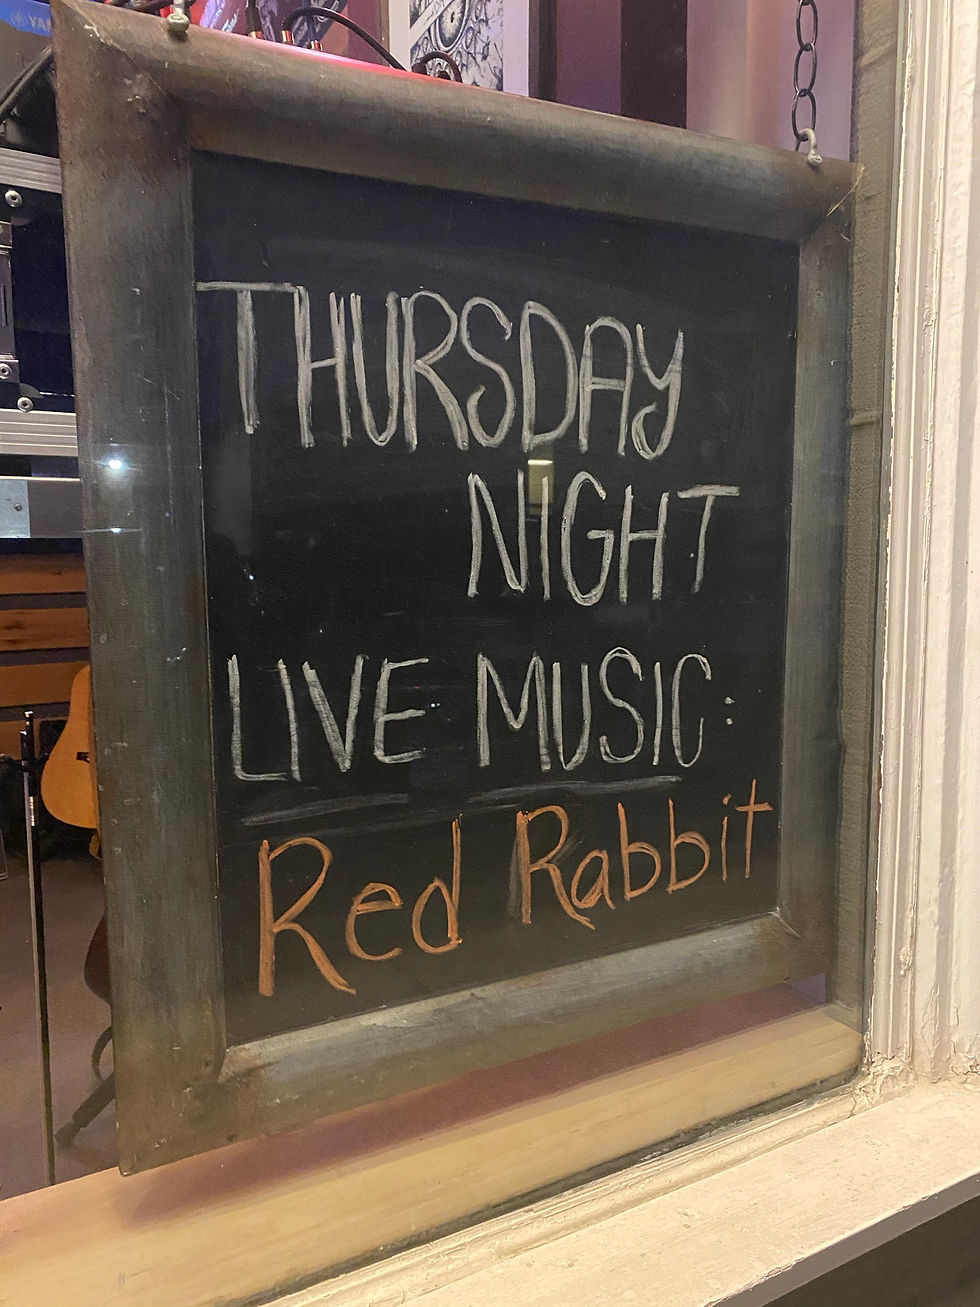 THURSDAY
NIGHT
LIVE MUSIC:
Red Rabbit